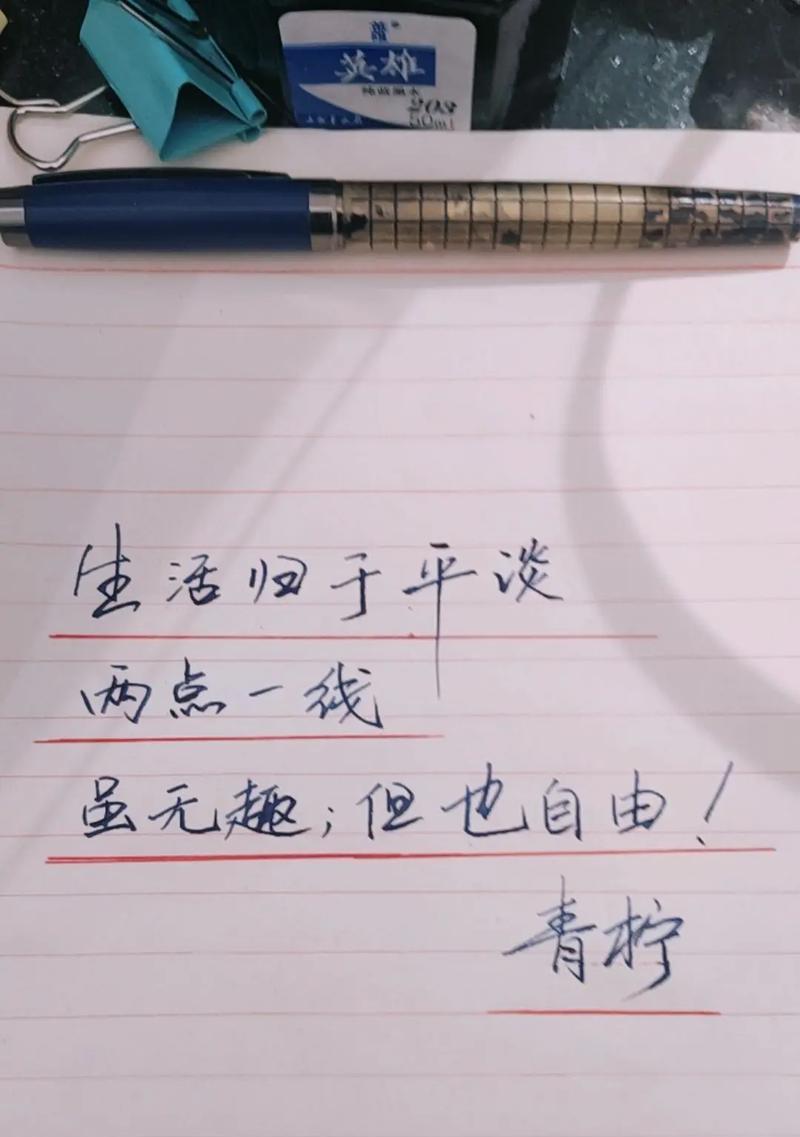 英雄
203
50ml
生活归于平淡
两点一线
虽无趣;但也自由!
青柠